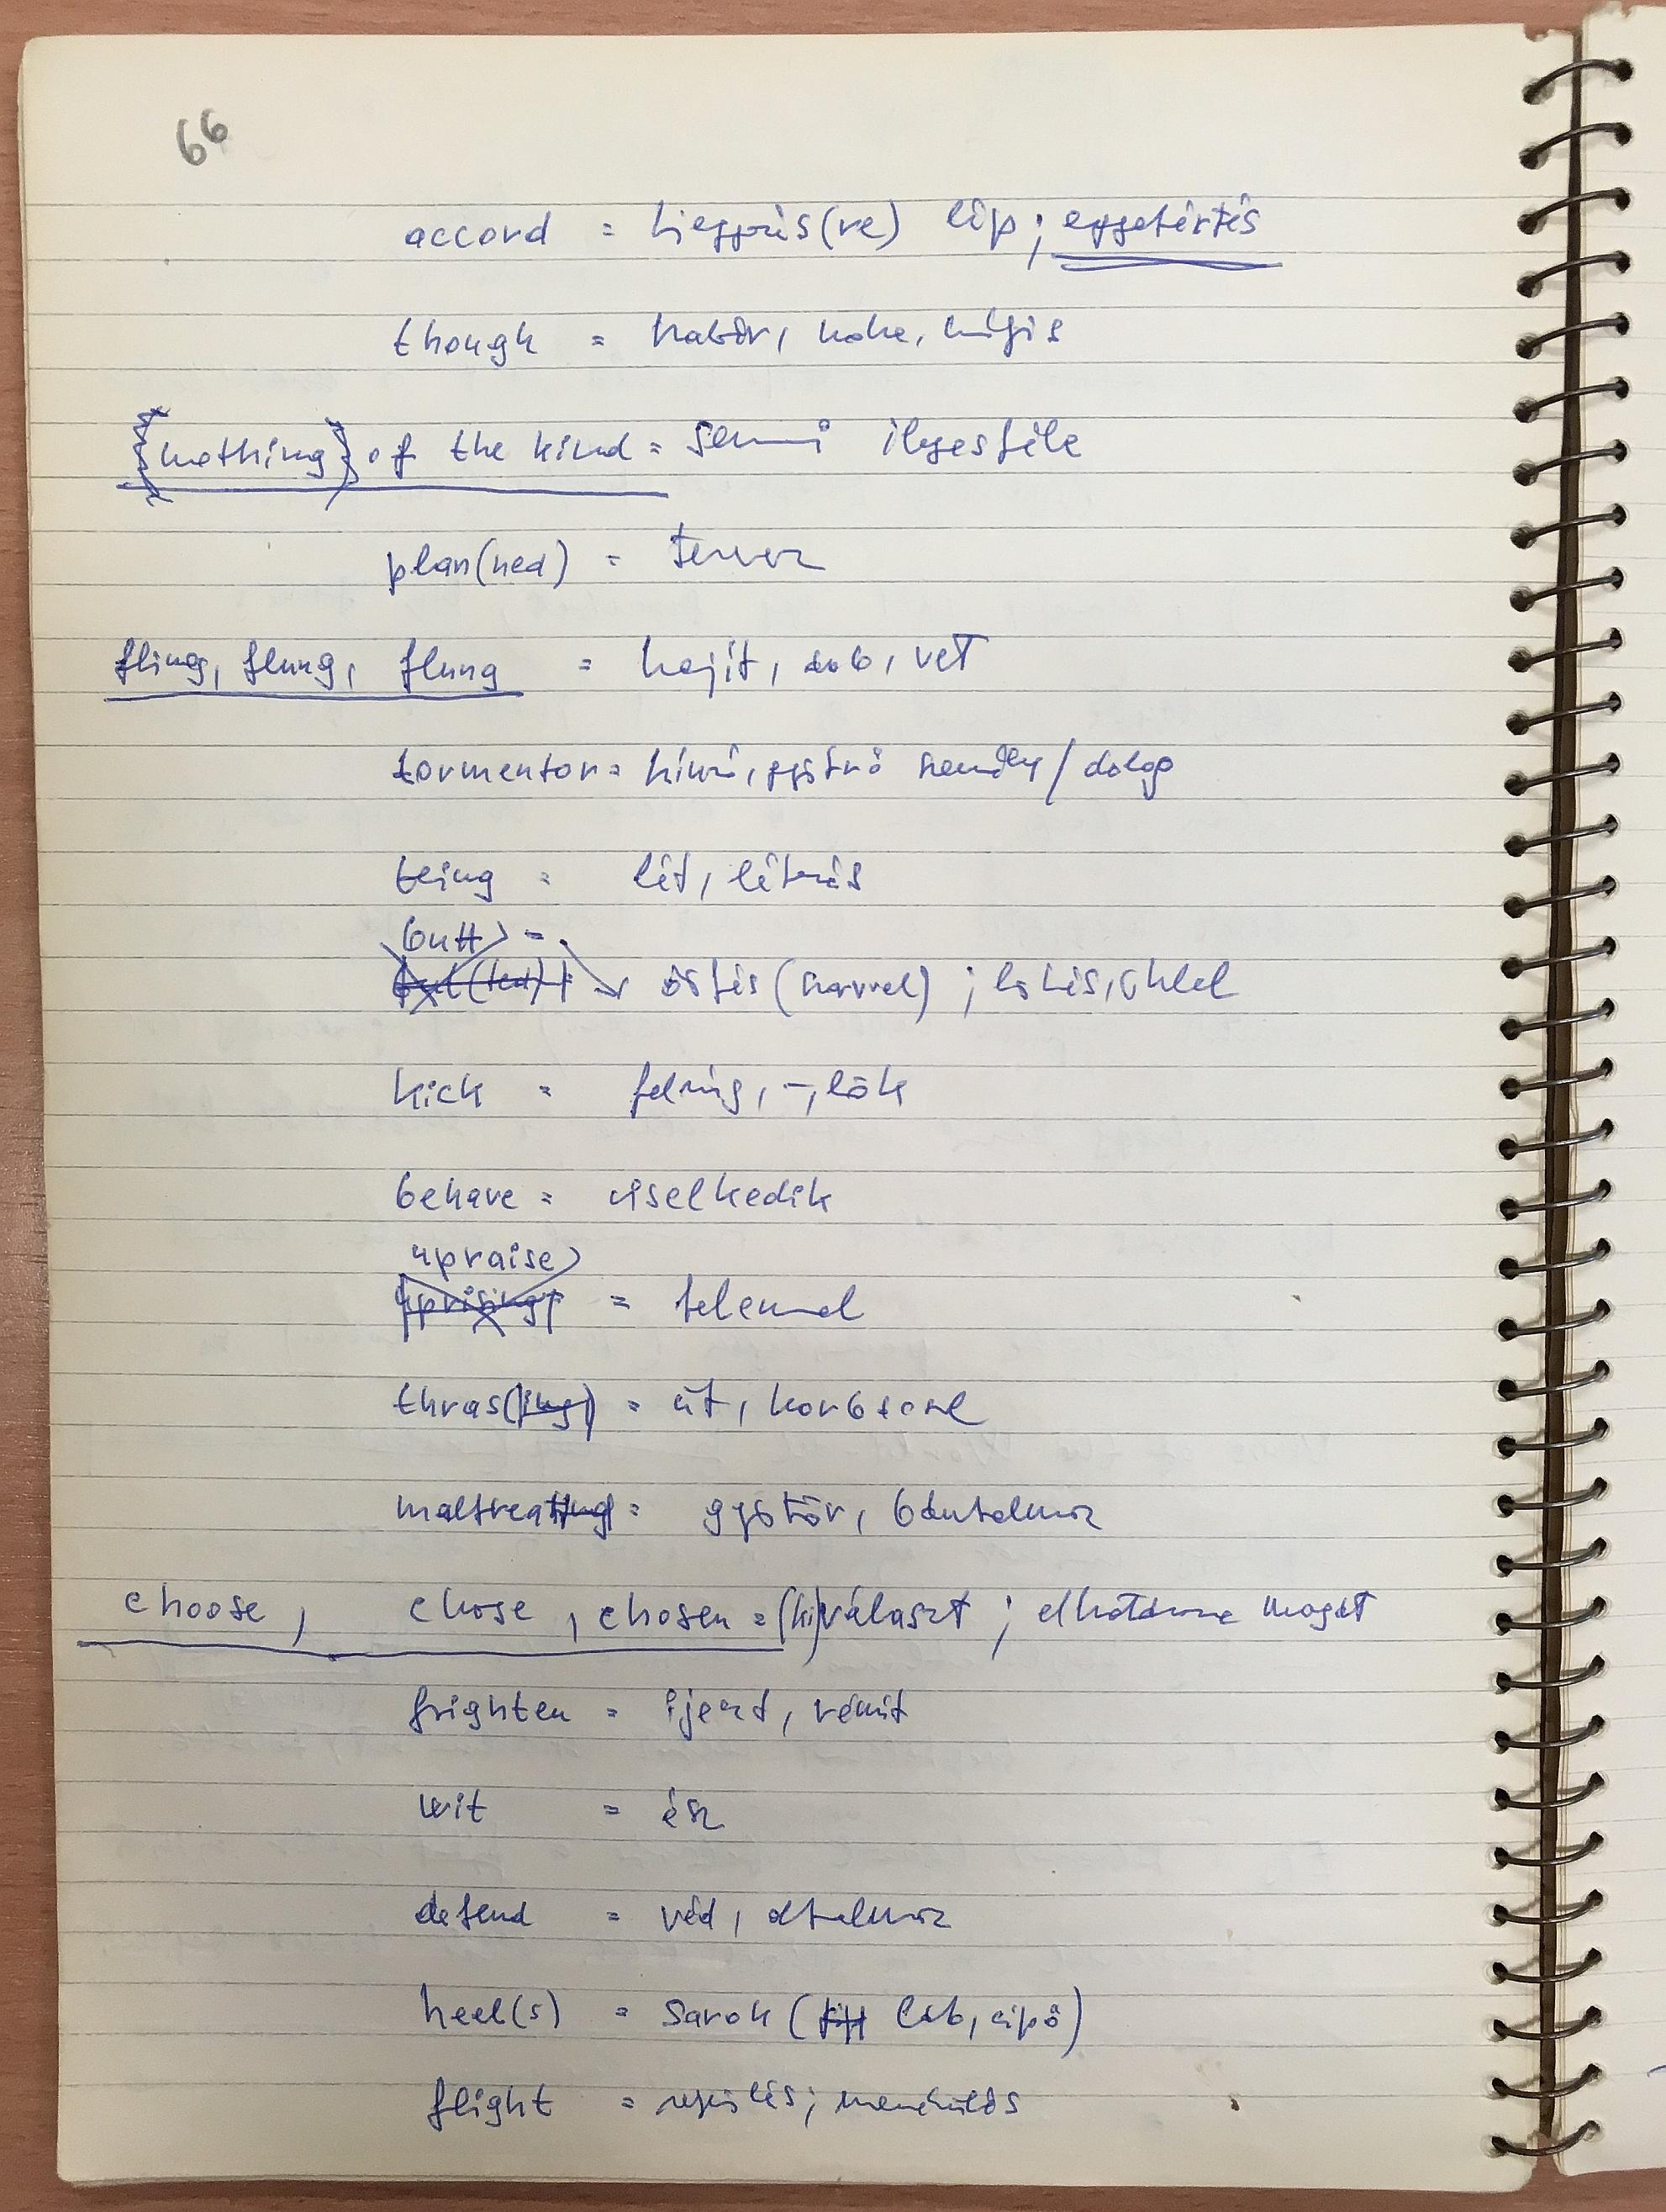 66
accord = kiegyezés(re) lép; egyetértés
though = habár, noha, mégis
{nothing} of the kind = semmi ilyesféle
plan(ned) = tervez
fling, flung, flung = hajít, dob, vet
tormentor = kínzó, gyötrő személy/dolog
being = lét, létezés
butt =
öklelés (szarvval); lökés, öklel
kick = felrúg, -, lök
behave = viselkedik
upraise
uprising = felemel
thras(ing) = üt, korbácsol
maltreating = gyötör, bántalmaz
choose, chose, chosen = (ki)választ; elhatározza magát
frighten = ijeszt, rémít
wit = ész
defend = véd, oltalmaz
heel(s) = sarok (láb, cipő)
flight = repülés; menekülés